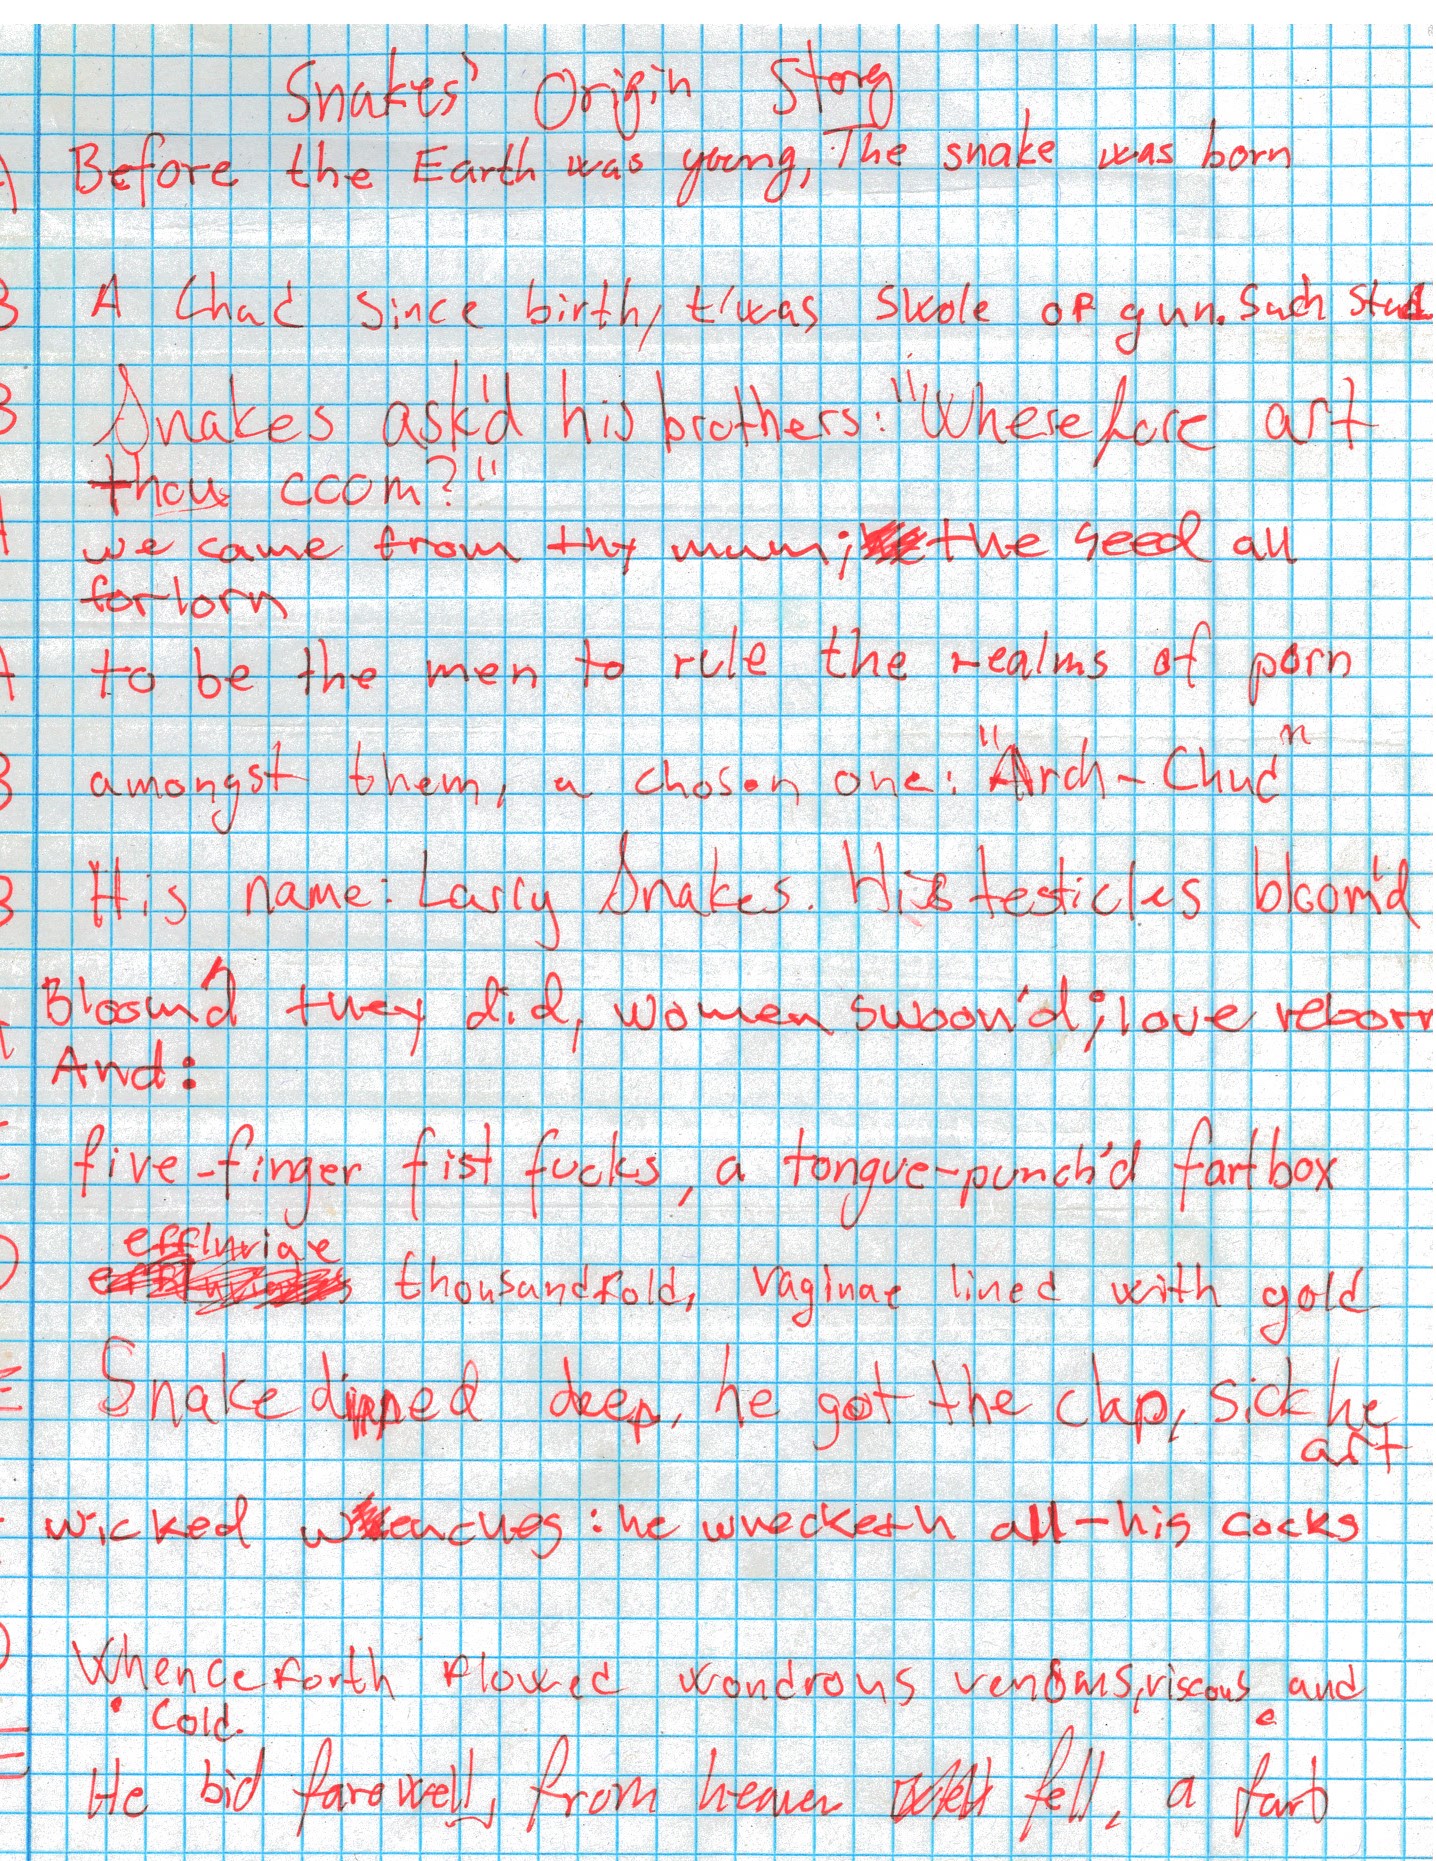 Snakes' Origin Story
A Before the Earth was young, The snake was born
B A Chad since birth, t'was swole of gun. Such stud
B Snakes ask'd his brothers: "Wherefore art
thou ccom?"
A we came from thy mum; the seed all
forlorn
A to be the men to rule the realms of porn
B amongst them, a chosen one: "Arch-Chud"
B His name: Larry Snakes. His testicles bloom'd
A Bloom'd they did, women swoon'd; love reborn
And:
C five-finger fist fucks, a tongue-punch'd fartbox
effluviae
D thousandfold, vaginae lined with gold
E Snake dipped deep, he got the clap, sick he
art
C wicked wenches: he wrecketh all-his cocks
D Whenceforth flowed wondrous venoms, viscous and
cold.
E He bid farewell, from heaven fell, a fart